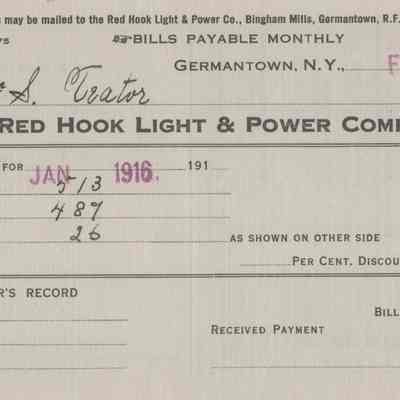 s may be mailed to the Red Hook Light & Power Co., Bingham Mills, Germantown, R.F.
ys ☞BILLS PAYABLE MONTHLY
GERMANTOWN, N.Y., F
S. Trator
RED HOOK LIGHT & POWER COMP
FOR JAN 1916. 191
513
487
26 AS SHOWN ON OTHER SIDE
PER CENT. DISCOU
R'S RECORD
BILL
RECEIVED PAYMENT